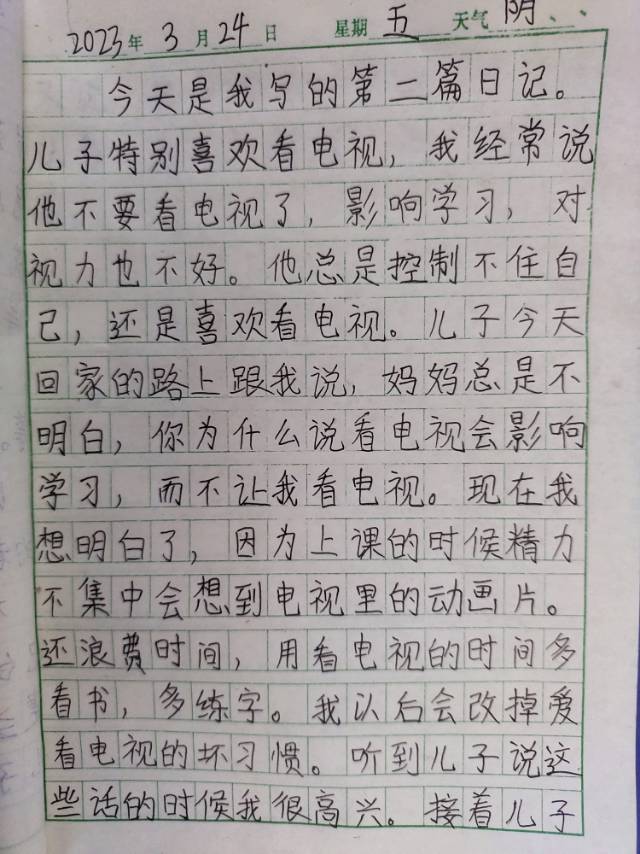 2023年3月24日 星期五 天气阴、、
今天是我写的第二篇日记。
儿子特别喜欢看电视，我经常说
他不要看电视了，影响学习，对
视力也不好。他总是控制不住自
己，还是喜欢看电视。儿子今天
回家的路上跟我说，妈妈总是不
明白，你为什么说看电视会影响
学习，而不让我看电视。现在我
想明白了，因为上课的时候精力
不集中会想到电视里的动画片。
还浪费时间，用看电视的时间多
看书，多练字。我以后会改掉爱
看电视的坏习惯。听到儿子说这
些话的时候我很高兴。接着儿子